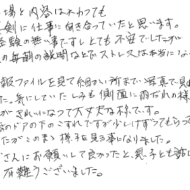 場と内容はかわっても
剣に仕事に向き合っていたと思います。
経験の無い事ですしとても不安でしたが
毎朝の説明などでストレスは本当に
報ファイルを見て細かい所まで写真で
た。気にしていたしみも側面に
がきれいになって大丈夫な様です。
のドアの下のこすれですが少しけずってもらって
たがこのまま様子を見る事になりました。
さんにお願いして良かったと、親子とも
有難うございました。